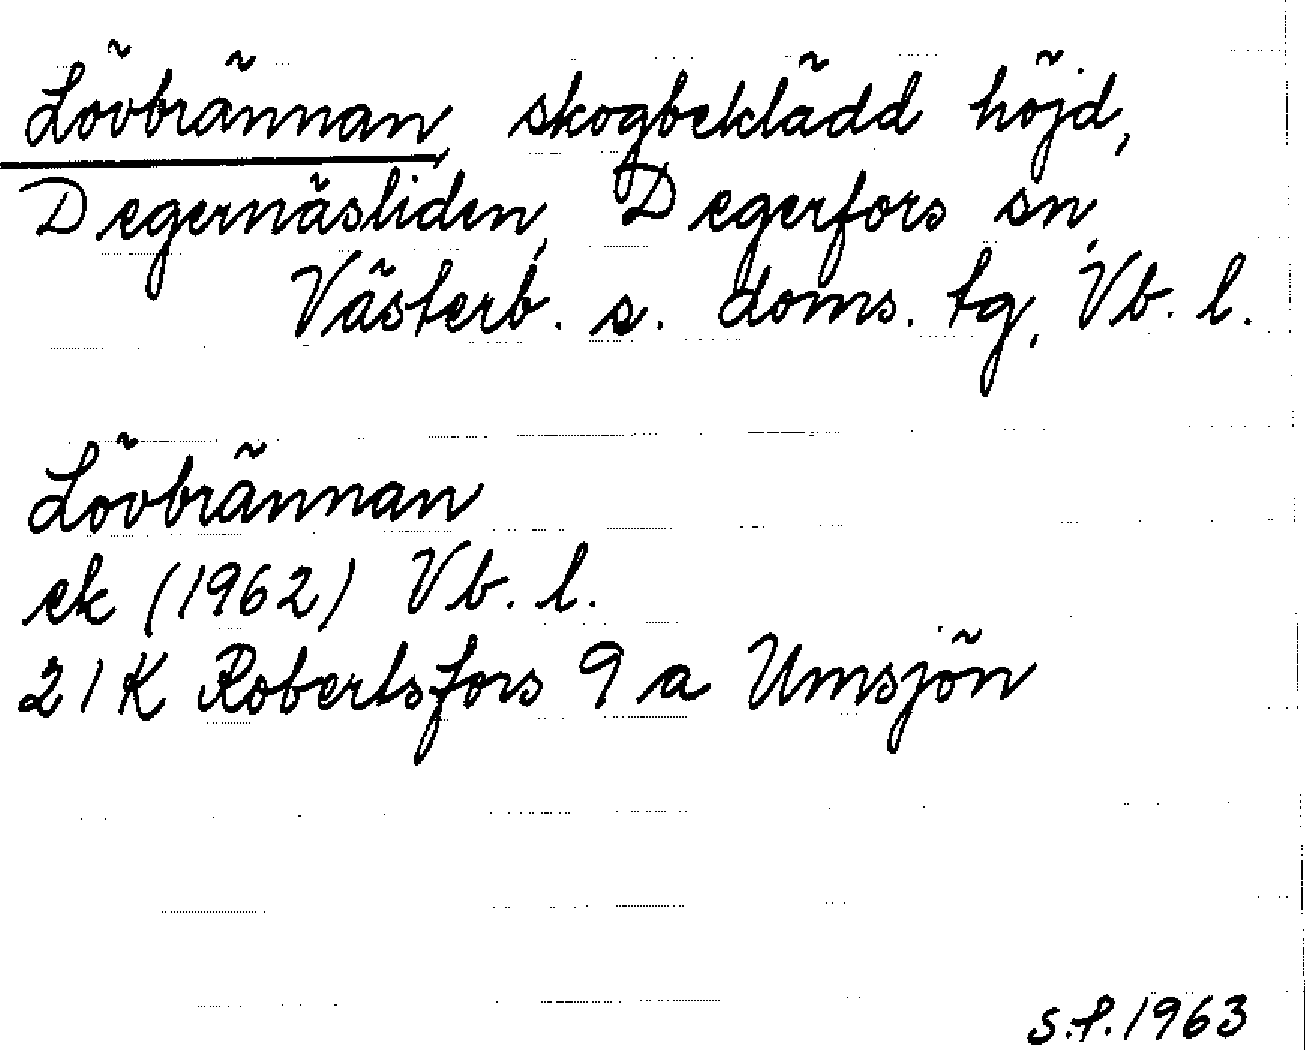 Lövbrännan, skogbeklädd höjd,
Degernäsliden, Degerfors sn,
Västerb. s. doms. tg, Vb. l.
Lövbrännan
ek (1962) Vb. l.
21K Robertsfors 9 a Umsjön
S.f. 1963